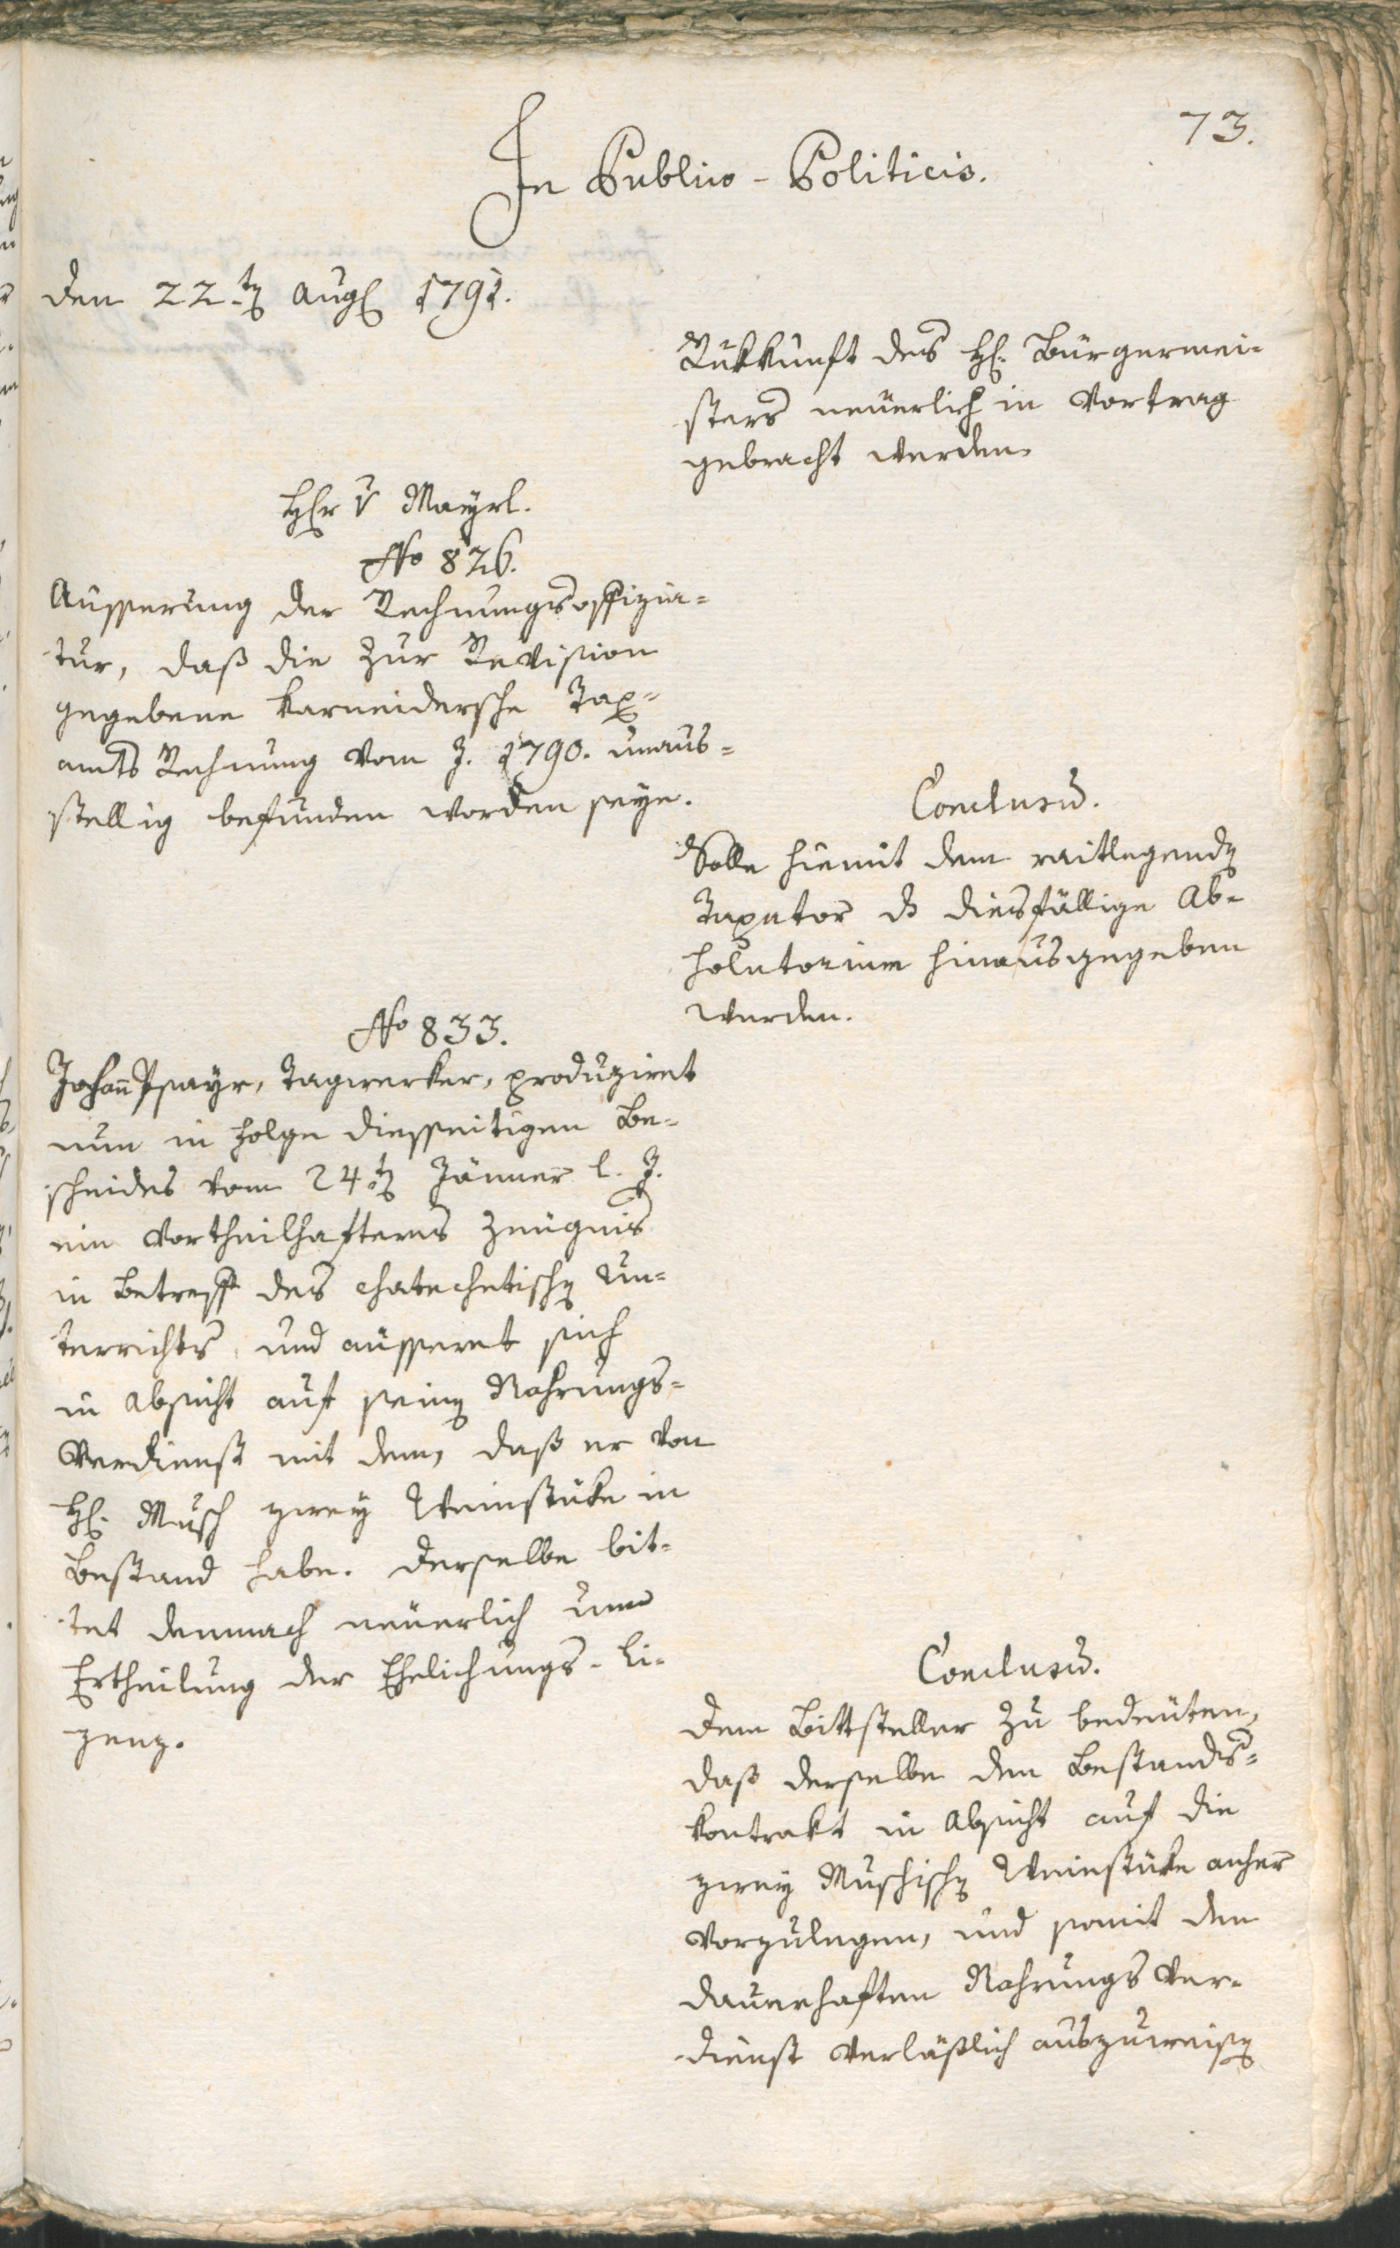 73.
In Publico-Politicis.
den 22ten Augl 1791.
Rükkunft des Hl. Bürgermei-
sters neüerlich in Vortrag
gebracht werden.
Hr v Mayrl.
No 826.
Aüsserung der Rechnungsoffizia-
tur, daß die zur Revision
gegebene Karneidersche Tax-
amts Rechnung vom J. 1790. unaus-
stellig befunden worden seye.
Conclusu.
Solle hiemit dem raitlegenden
Taxator ds diesfällige Ab-
solutorium hinausgegeben
werden.
No 833.
Johann Mayr, Tagwerker, produziret
nun in Folge diesseitigen Be-
scheides vom 24ten Jänner l. J.
ein vortheilhafteres Zeügnis
in Betreff des chatechetischen Un-
terrichts, und aüsseret sich
in Absicht auf seinen Nahrungs-
Verdienst mit dem, daß er von
Hl. Musch zwey Weinstüke in
Bestand habe. Derselbe bit-
tet demnach neüerlich um
Ertheilung der Ehelichungs-Li-
zenz.
Conclusu.
Dem Bittsteller zu bedeüten,
daß derselbe den Bestands-
kontrakt in Absicht auf die
zwey Muschischen Weinstüke anher
vorzulegen, und somit den
dauerhaften Nahrungs Ver-
dienst verläßlich auszuweisen